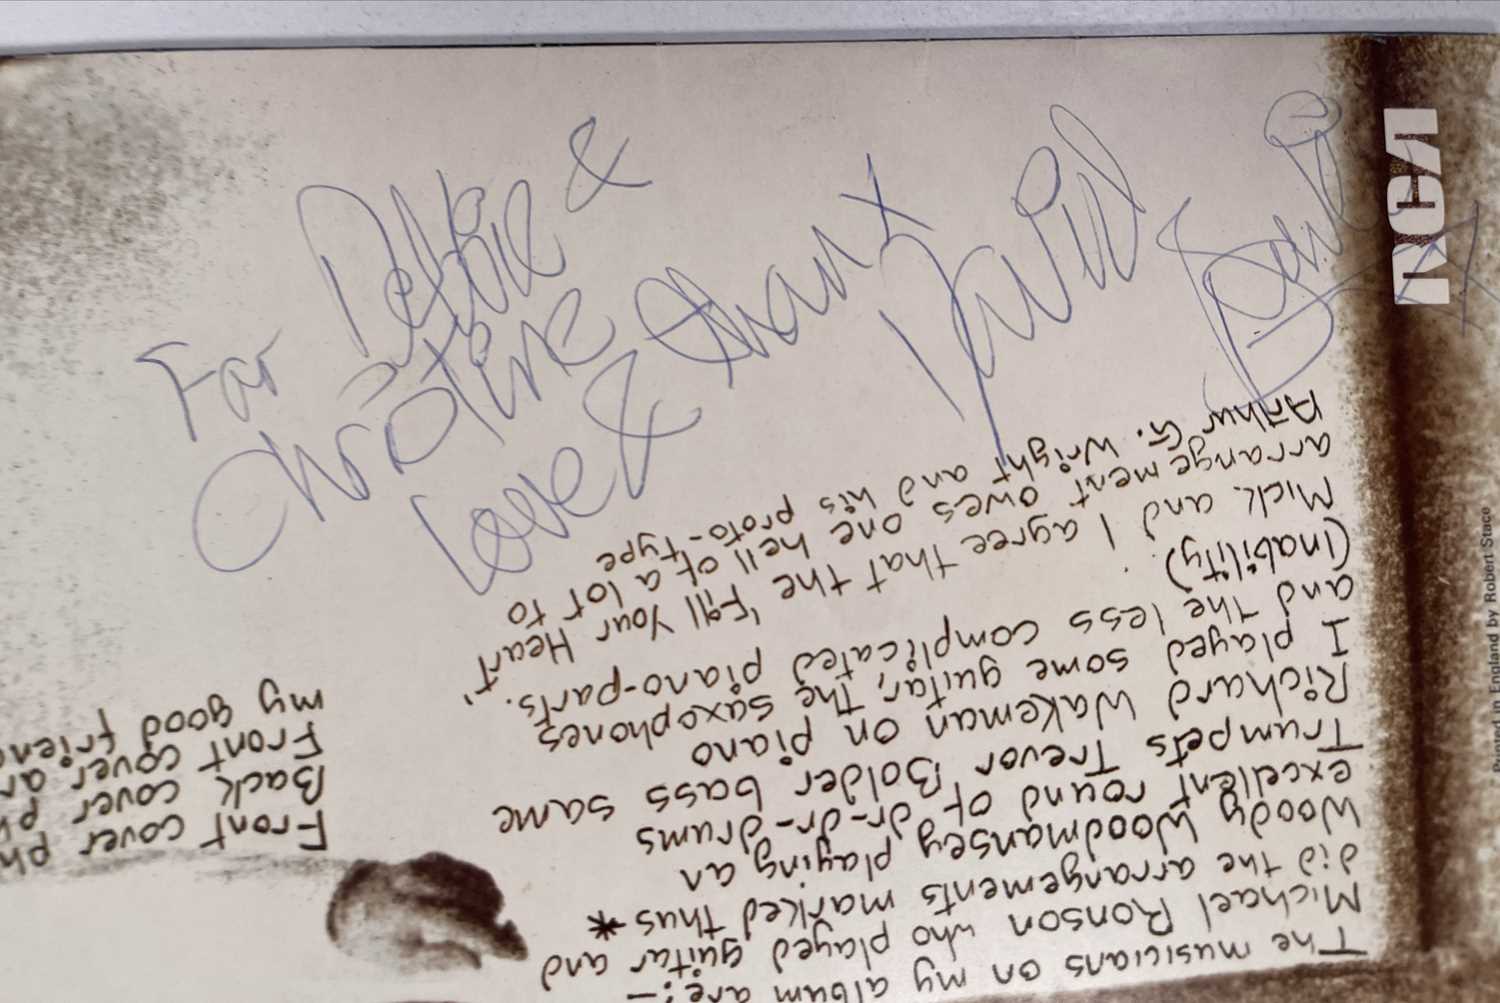 For Debbie &
Christine
Love & thanx
David
Bowie
RCA
Printed in England by Robert Stace
The musicians on my album are:-
Michael Ronson who played guitar and
did the arrangements marked thus *
Woody Woodmansey playing an
excellent round of dr-dr-drums
Trumpets Trevor Bolder bass same
Richard Wakeman on piano
I played some guitar, the saxophones
and the less complicated piano-parts.
(Inability)
Mick. and I agree that the 'Fill Your Heart'
arrangement owes one hell of a lot to
Arthur G. Wright and his proto-type
Front cover ph
Back cover ph
Front cover ar
my good frien